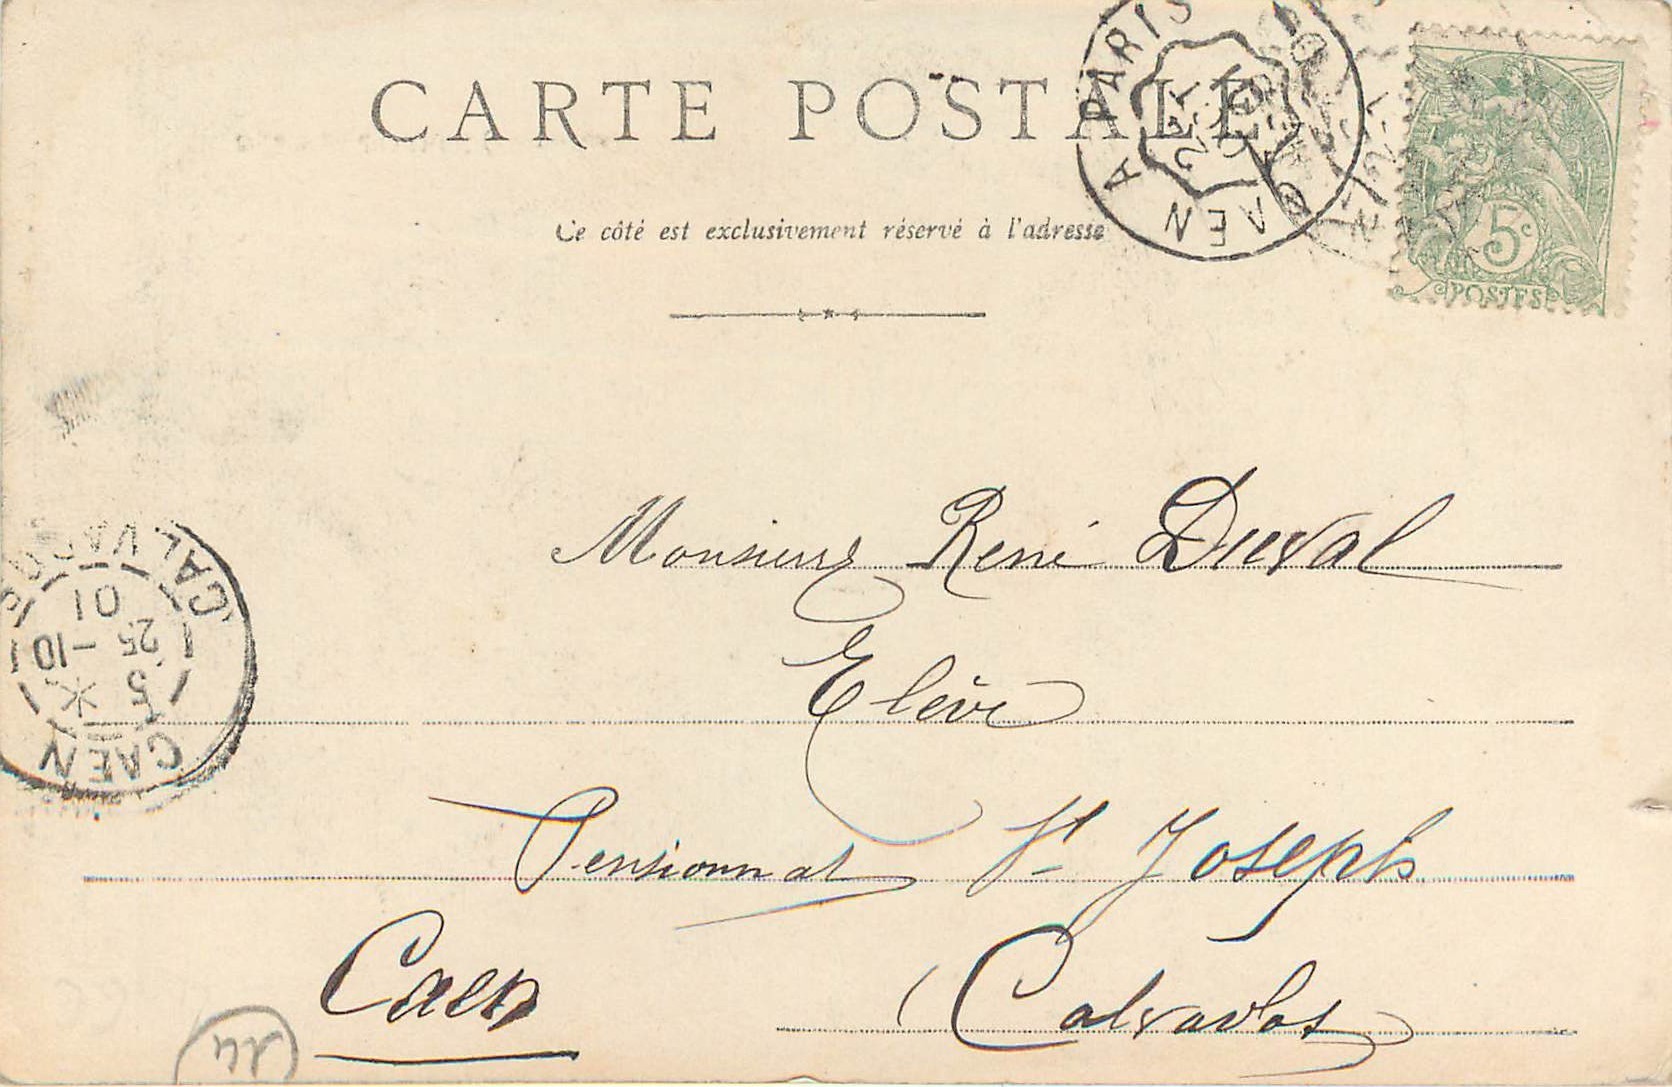 CARTE POSTALE
Ce côté est exclusivement réservé à l'adresse
CAEN A PARIS
5c
POSTES
Monsieur René Duval
Elève
Pensionnat St Joseph
Caen
(Calvados
CAEN
5
25 -10
01
CALVADOS
14